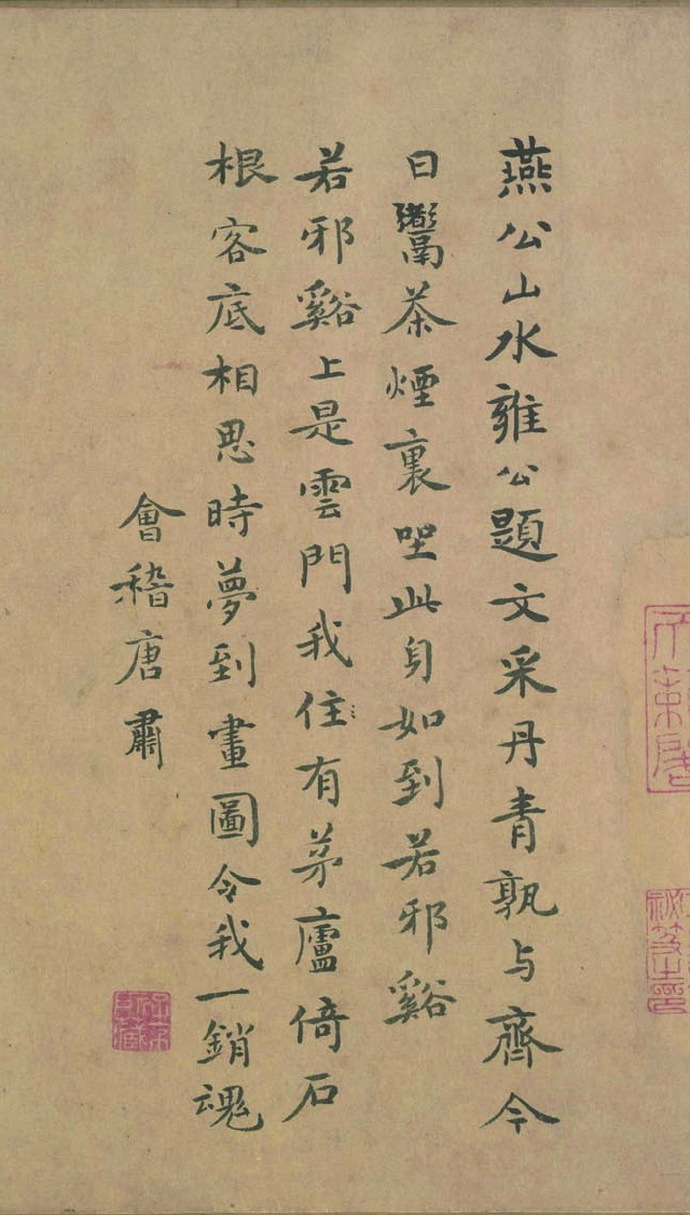 燕公山水雍公題文采丹青孰与齊今
日䰞茶煙裏坐此身如到若邪谿
若邪谿上是雲門我住有茅廬倚石
根客底相思時夢到畫圖令我一銷魂
會稽唐肅